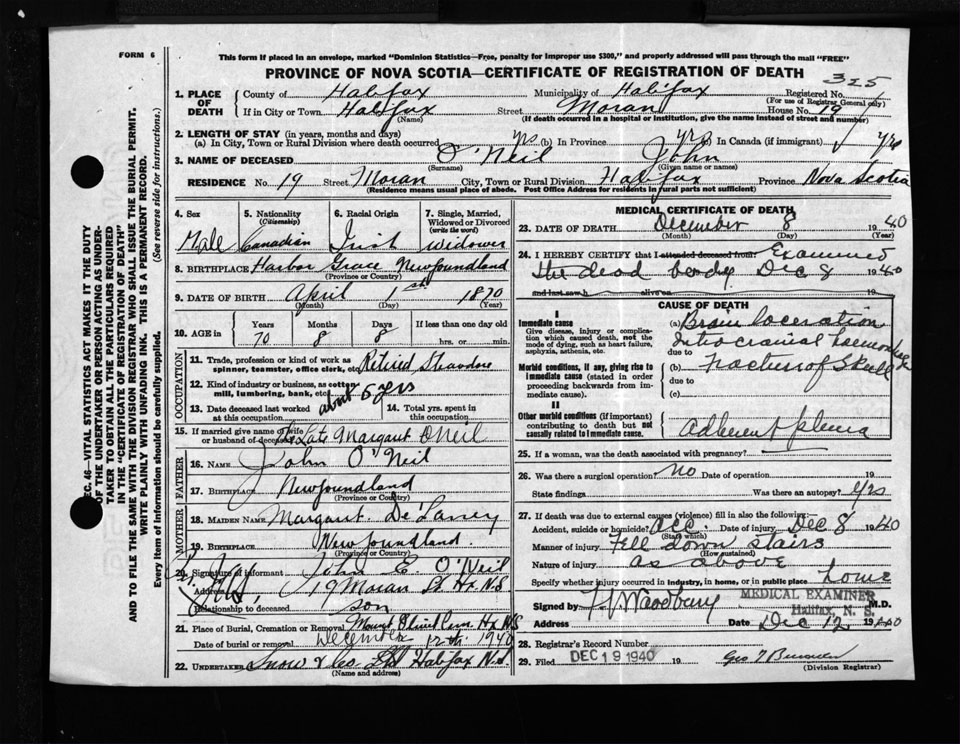 FORM 6
This form if placed in an envelope, marked "Dominion Statistics—Free, penalty for improper use $300," and properly addressed will pass through the mail "FREE"
PROVINCE OF NOVA SCOTIA—CERTIFICATE OF REGISTRATION OF DEATH
325
1. PLACE OF DEATH
County of Halifax Municipality of Halifax Registered No.
(For use of Registrar General only)
If in City or Town Halifax Street Moran House No. 19
(Name) (If death occurred in a hospital or institution, give the name instead of street and number)
2. LENGTH OF STAY (in years, months and days)
(a) In City, Town or Rural Division where death occurred yrs (b) In Province yrs (c) In Canada (if immigrant) yrs
3. NAME OF DECEASED O'Neil John
(Surname) (Given name or names)
RESIDENCE No. 19 Street Moran City, Town or Rural Division Halifax Province Nova Scotia
(Residence means usual place of abode. Post Office Address for residents in rural parts not sufficient)
4. Sex 5. Nationality (Citizenship) 6. Racial Origin 7. Single, Married, Widowed or Divorced (write the word)
Male Canadian Irish Widower
8. BIRTHPLACE Harbor Grace Newfoundland
(Province or Country)
9. DATE OF BIRTH April 1st 1870
(Month) (Day) (Year)
10. AGE in Years Months Days If less than one day old
70 8 8 hrs. or min.
OCCUPATION
11. Trade, profession or kind of work as spinner, teamster, office clerk, etc. Retired Stevedore
12. Kind of industry or business, as cotton mill, lumbering, bank, etc.
13. Date deceased last worked at this occupation about 6 yrs 14. Total yrs. spent in this occupation
15. If married give name of wife or husband of deceased The Late Margaret O'Neil
FATHER
16. NAME John O'Neil
17. BIRTHPLACE Newfoundland
(Province or Country)
MOTHER
18. MAIDEN NAME Margaret De Laney
19. BIRTHPLACE Newfoundland.
(Province or Country)
20. Signature of informant John E. O'Neil
Address 19 Moran St Hx N.S
Relationship to deceased son
21. Place of Burial, Cremation or Removal Mount Olivet Cem. Hx N.S
Date of burial or removal December 12th 1940
22. UNDERTAKER Snow & Co. Ltd Halifax N.S.
(Name and address)
MEDICAL CERTIFICATE OF DEATH
23. DATE OF DEATH December 8 1940
(Month) (Day) (Year)
24. I HEREBY CERTIFY that I attended deceased from: Examined
the dead body Dec 8 1940
and last saw h alive on
CAUSE OF DEATH
I
Immediate cause
Give disease, injury or complication which caused death, not the mode of dying, such as heart failure, asphyxia, asthenia, etc.
(a) Brain laceration
Intra cranial haemorrhage
due to
Morbid conditions, if any, giving rise to immediate cause (stated in order proceeding backwards from immediate cause).
(b) Fracture of Skull
due to
(c)
II
Other morbid conditions (if important) contributing to death but not causally related to immediate cause.
Adherent pleura
25. If a woman, was the death associated with pregnancy?
26. Was there a surgical operation? no Date of operation 19
State findings Was there an autopsy? yes
27. If death was due to external causes (violence) fill in also the following:—
Accident, suicide or homicide? Acc. Date of injury Dec 8 1940
(State which)
Manner of injury Fell down stairs
(How sustained)
Nature of injury as above
Specify whether injury occurred in industry, in home, or in public place home
MEDICAL EXAMINER
Signed by Woodbury M.D.
Halifax, N. S.
Address Date Dec 12 1940
28. Registrar's Record Number
29. Filed DEC 19 1940 19
(Division Registrar)
SEC. 46—VITAL STATISTICS ACT MAKES IT THE DUTY
OF THE UNDERTAKER OR PERSON ACTING AS UNDER-
TAKER TO OBTAIN ALL THE PARTICULARS REQUIRED
IN THE "CERTIFICATE OF DEATH"
AND TO FILE THE SAME WITH THE DIVISION REGISTRAR WHO SHALL ISSUE THE BURIAL PERMIT.
WRITE PLAINLY WITH UNFADING INK. THIS IS A PERMANENT RECORD.
Every item of information should be carefully supplied. (See reverse side for instructions.)